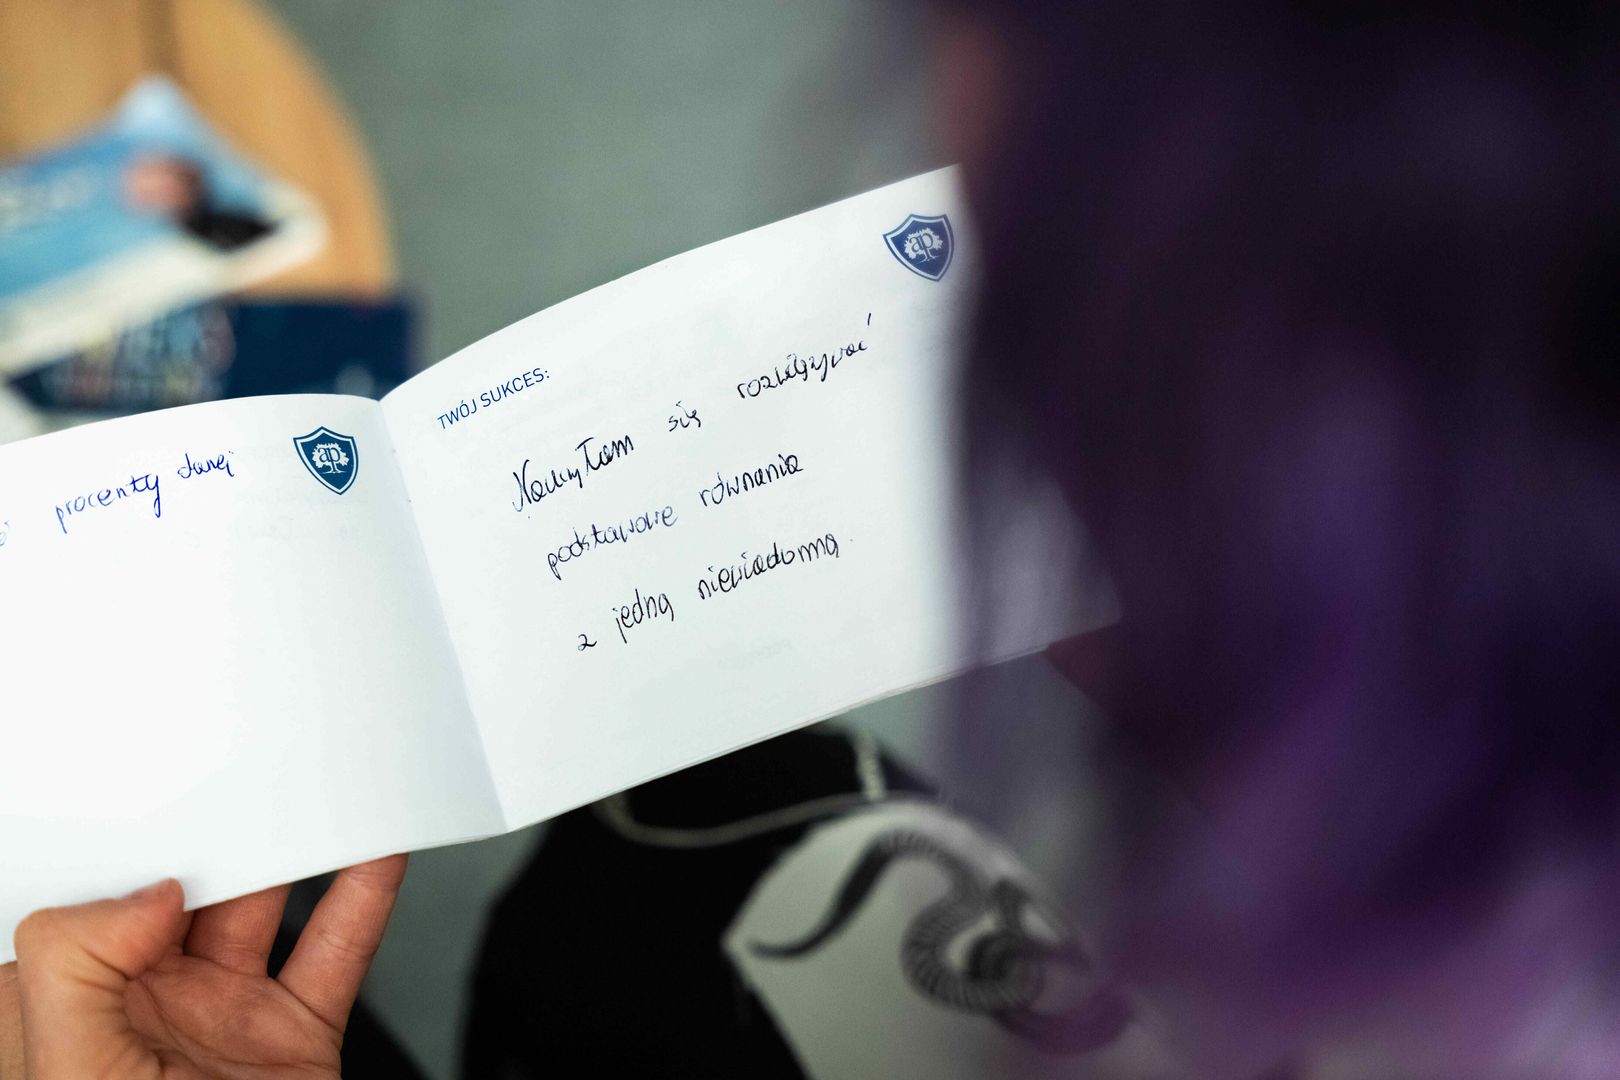 procenty danej
ap
TWÓJ SUKCES:
ap
Nauczyłam się rozwiązywać
podstawowe równania
z jedną niewiadomą.